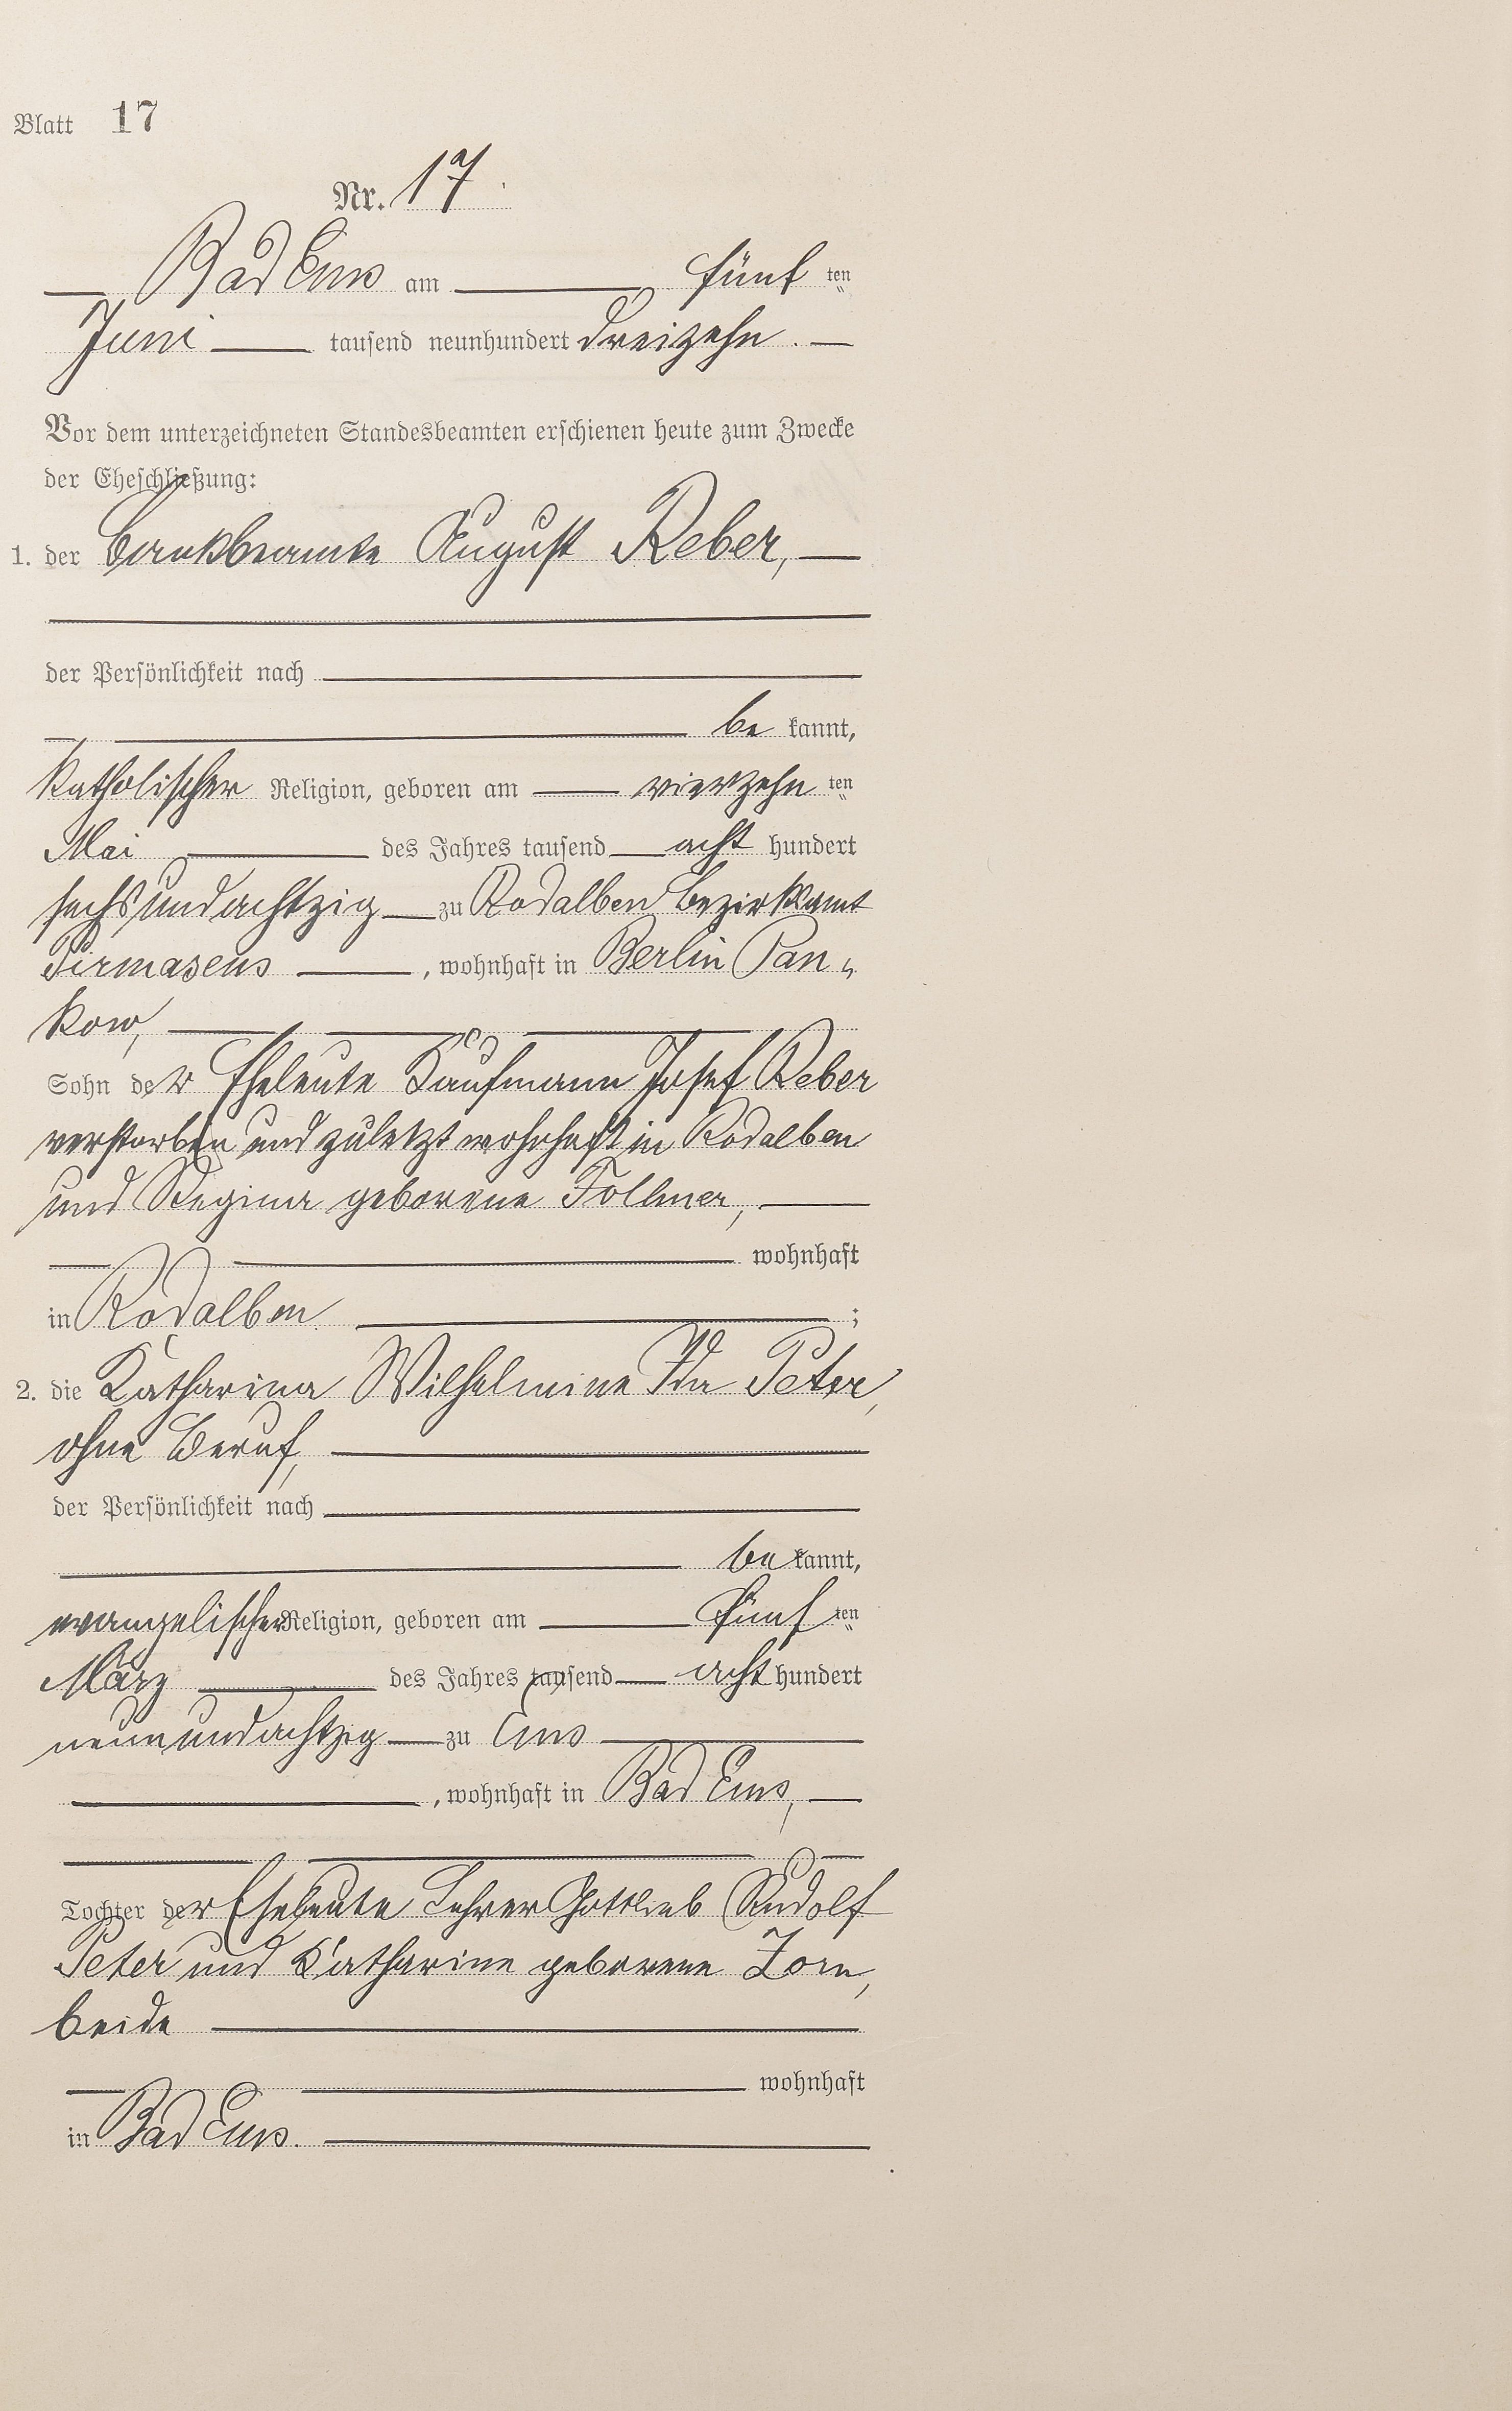 Blatt 17
Nr. 17.
Bad Ems am fünf ten
Juni tausend neunhundert dreizehn.
Vor dem unterzeichneten Standesbeamten erschienen heute zum Zwecke
der Eheschließung:
1. der Bankbeamte August Reber,
der Persönlichkeit nach
be kannt,
katholischer Religion, geboren am vierzehn ten
Mai des Jahres tausend acht hundert
sechsundachtzig zu Rodalben Bezirksamt
Pirmasens, wohnhaft in Berlin Pan„
kow,
Sohn der Eheleute Kaufmann Josef Reber
verstorben und zuletzt wohnhaft in Rodalben
und Regina geborene Follmer,
wohnhaft
in Rodalben ;
2. die Katharina Wilhelmine Ida Peter,
ohne Beruf,
der Persönlichkeit nach
be kannt,
evangelischer Religion, geboren am fünf ten
März des Jahres tausend acht hundert
neunundachtzig zu Ems
, wohnhaft in Bad Ems,
Tochter der Eheleute Lehrer Gottlieb Rudolf
Peter und Katharine geborene Zorn,
beide
wohnhaft
in Bad Ems.